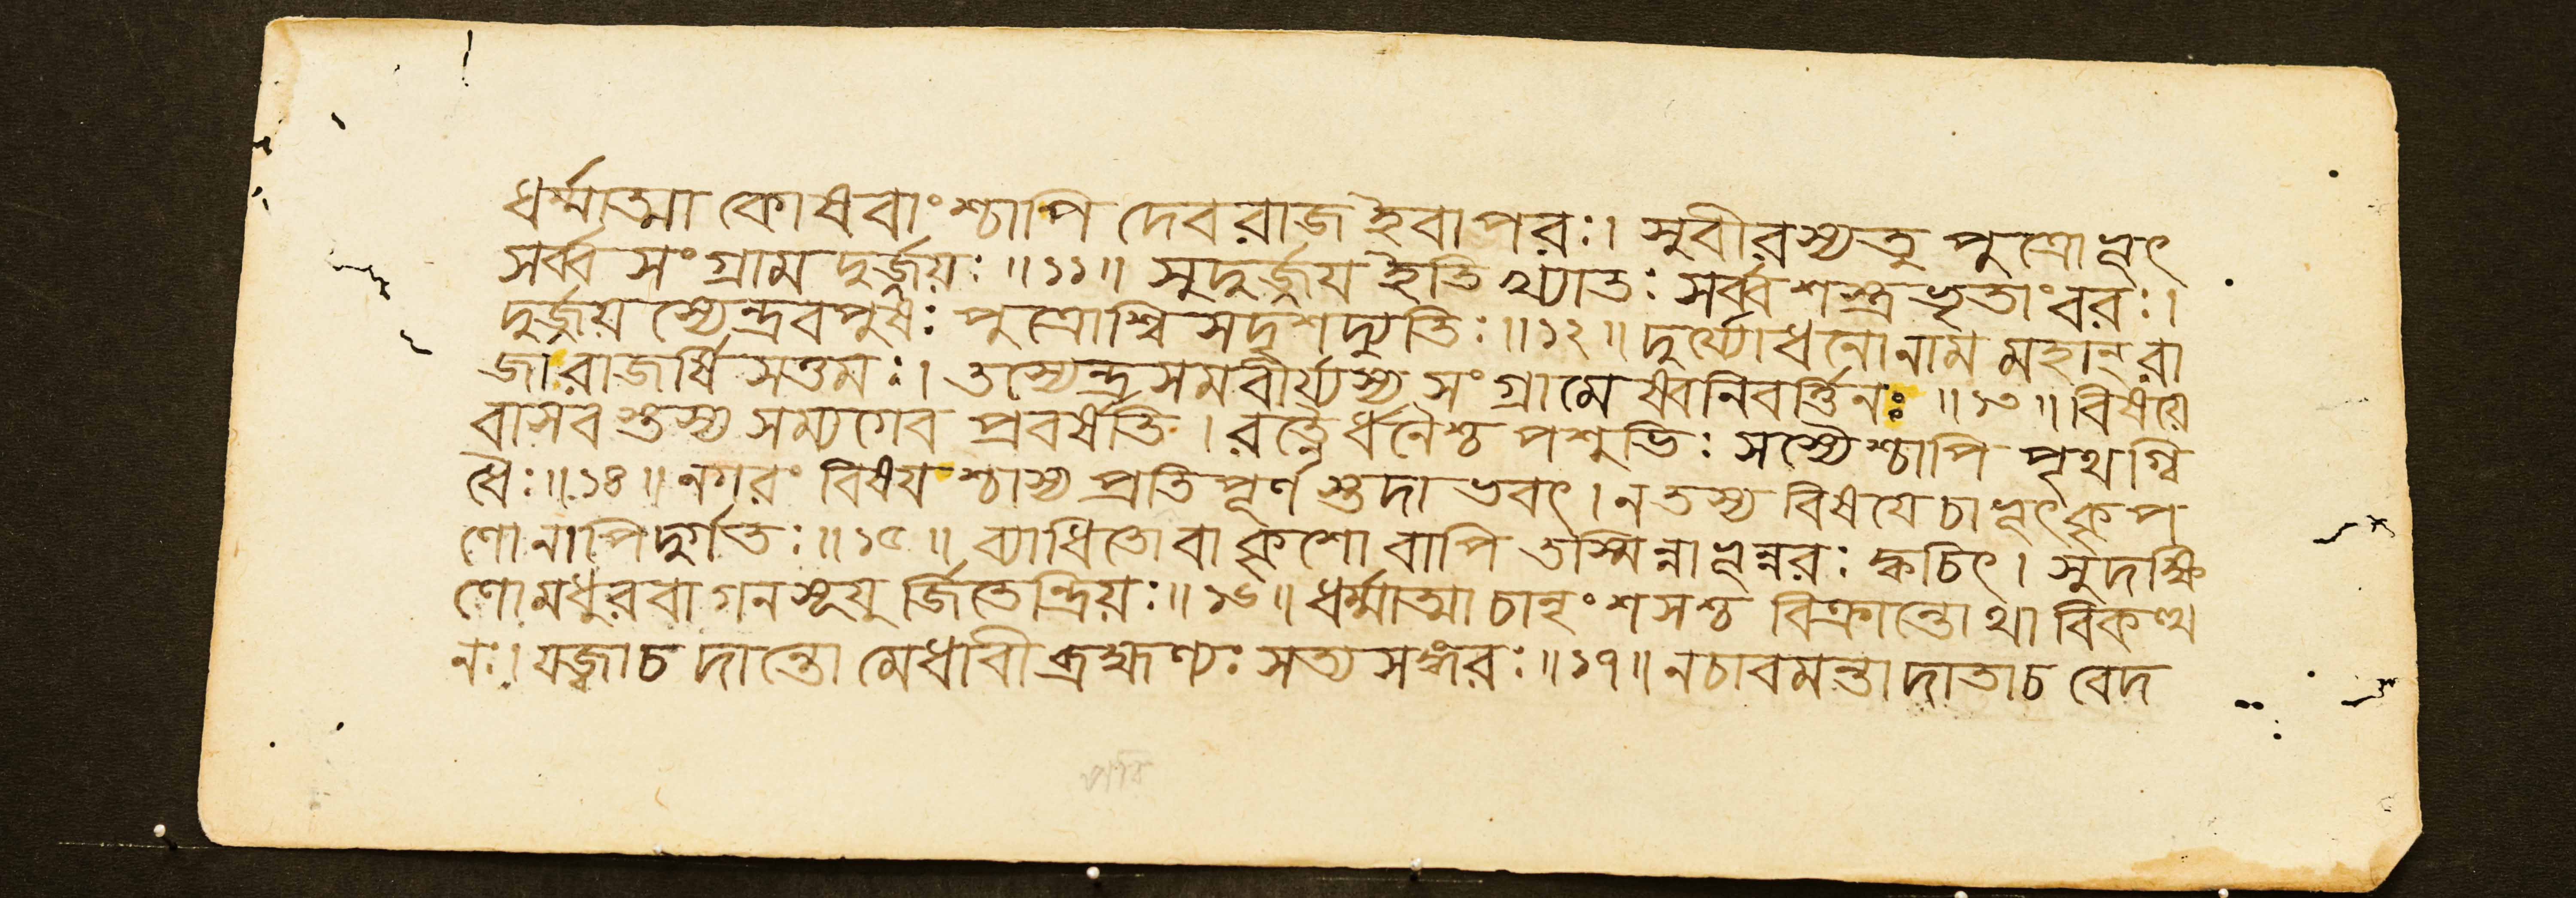 ধর্ম্মাত্মা কোষবাংশ্চাপি দেবরাজ ইবাপরঃ। সুবীরস্যতু পুত্রোভূৎ
সর্ব্ব সংগ্রাম দুর্জ্জয়ঃ॥১১॥ সুদুর্জ্জয় ইতি খ্যাতঃ সর্ব্বশস্ত্রভৃতাংবরঃ।
দুর্জ্জয়স্যেন্দ্রবপুষঃ পুত্রোশ্বিসদৃশদ্যুতিঃ॥১২॥ দুর্য্যোধনোনাম মহান্রা
জারাজর্ষিসত্তমঃ। তস্যেন্দ্রসমবীর্য্যস্য সংগ্রামেষ্বনিবর্ত্তিনঃ॥১৩॥ বিষয়ে
বাসবস্তস্য সম্যগেব প্রবর্ষতি। রত্নৈর্ধনৈশ্চ পশুভিঃ সস্যৈশ্চাপি পৃথগ্বি
ধৈঃ॥১৪॥ নগরং বিষয়শ্চাস্য প্রতিপূর্ণস্তদাভবৎ। ন তস্য বিষয়েচাভূৎকৃপ
ণোনাপিদুর্গতঃ॥১৫॥ ব্যাধিতোবা কৃশোবাপি তস্মিন্নাভূন্নরঃ ক্বচিৎ। সুদক্ষি
ণোমধুরবাগনসূয়ুর্জিতেন্দ্রিয়ঃ॥১৬॥ ধর্ম্মাত্মাচানৃংশসশ্চ বিক্রান্তোথাবিকত্থ
নঃ। যজ্বাচ দান্তো মেধাবী ব্রহ্মণ্যঃ সত্যসঙ্গরঃ॥১৭॥ নচাবমন্তাদাতাচ বেদ